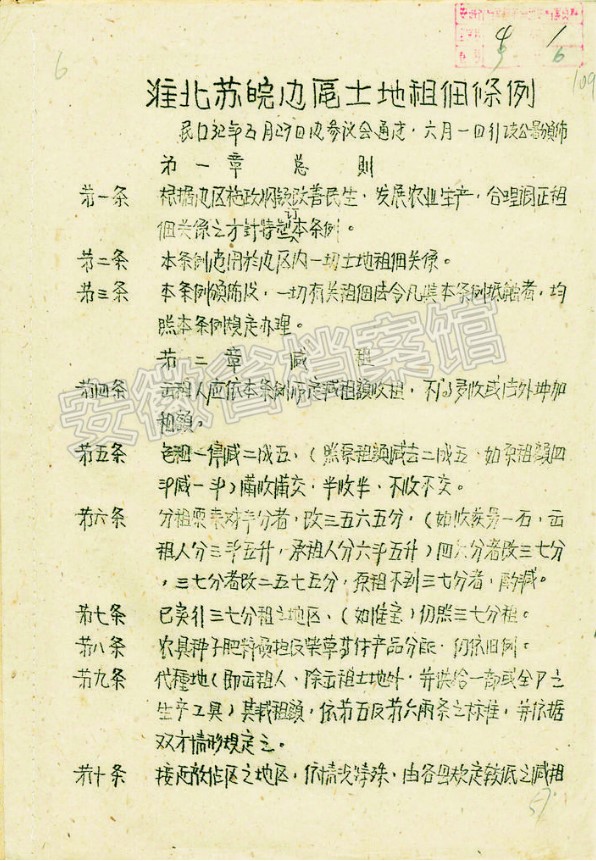 淮北苏皖边区土地租佃條例
民国32年五月29日边参议会通过，六月一日行政公署颁佈
第一章 总则
第一条 根据边区施政纲领改善民生，发展农业生产，合理调正租
佃关係之方針特订本条例。
第二条 本条例适用於边区内一切土地租佃关係。
第三条 本条例颁佈后，一切有关租佃法令凡与本条例抵触者，均
照本条例規定办理。
第二章 减租
第四条 出租人应依本条例所定减租額收租，不得多收或法外增加
租額。
第五条 包租一律减二成五，（照原租額减去二成五，如原租額四
斗减一斗）备收备交，半收半，不收不交。
第六条 分租原来对半分者，改三五六五分，（如收粮一石，出
租人分三斗五升，承租人分六斗五升）四六分者改三七分
，三七分者改二五七五分，原租不到三七分者，酌减。
第七条 已实行三七分租之地区，（如淮宝）仍照三七分租。
第八条 农具种子肥料负担及柴草等付产品分配，仍依旧例。
第九条 代種地（即出租人，除出租土地外，并供给一部或全部之
生产工具）其减租額，依第五及第六两条之标准，并依据
双方情形規定之。
第十条 接近敌佔区之地区，依情况特殊，由各县欵定較低之减租
安徽省档案馆
6
109
57
4
1
5
6